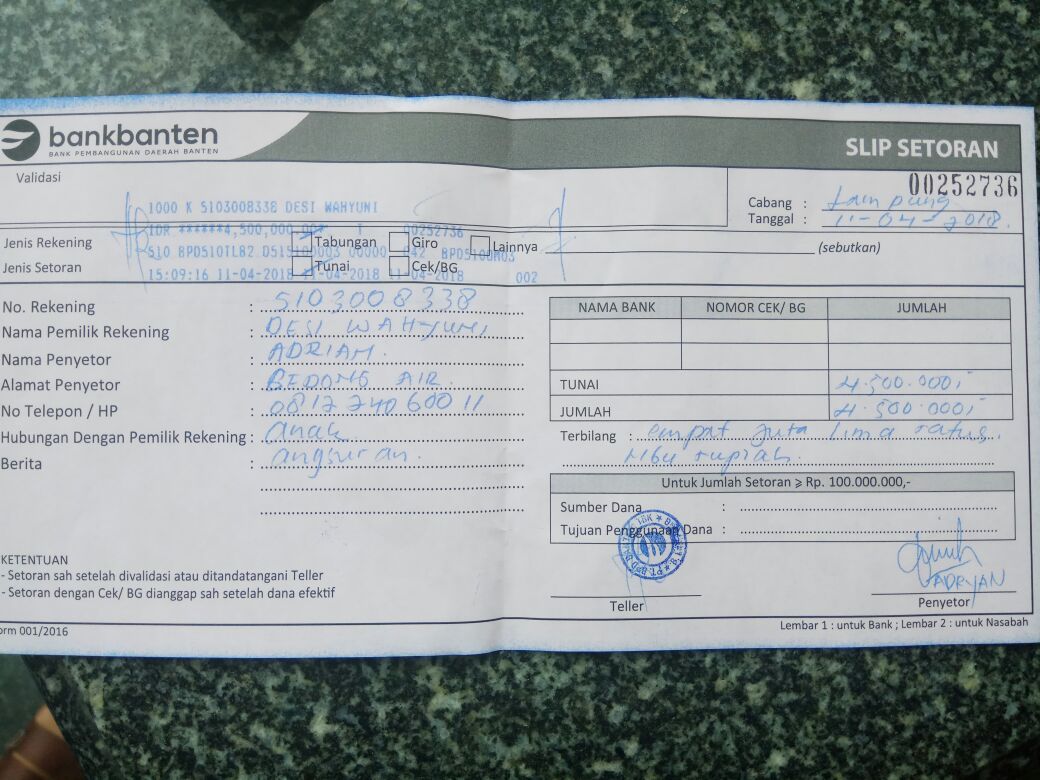 bankbanten
BANK PEMBANGUNAN DAERAH BANTEN
SLIP SETORAN
Validasi
00252736
1000 K 5103008338 DESI WAHYUNI
Cabang : Lampung
Tanggal : 11-04-2018
IDR ******4,500,000.00* T 00252736
Jenis Rekening Tabungan Giro Lainnya (sebutkan)
510 BPD510TL82 00000 042
Jenis Setoran Tunai Cek/BG
15:09:16 11-04-2018 11-04-2018 11-04-2018 002
No. Rekening : 5103008338
Nama Pemilik Rekening : DESI WAHYUNI
Nama Penyetor : ADRIAN
Alamat Penyetor : BEDONG AIR
No Telepon / HP : 0812274060011
Hubungan Dengan Pemilik Rekening : anak
Berita : angsuran
NAMA BANK NOMOR CEK/ BG JUMLAH
TUNAI 4.500.000,-
JUMLAH 4.500.000,-
Terbilang : empat juta lima ratus
ribu rupiah
Untuk Jumlah Setoran ⩾ Rp. 100.000.000,-
Sumber Dana :
Tujuan Penggunaan Dana :
KETENTUAN
- Setoran sah setelah divalidasi atau ditandatangani Teller
- Setoran dengan Cek/ BG dianggap sah setelah dana efektif
ADRYAN
Teller Penyetor
orm 001/2016
Lembar 1 : untuk Bank ; Lembar 2 : untuk Nasabah